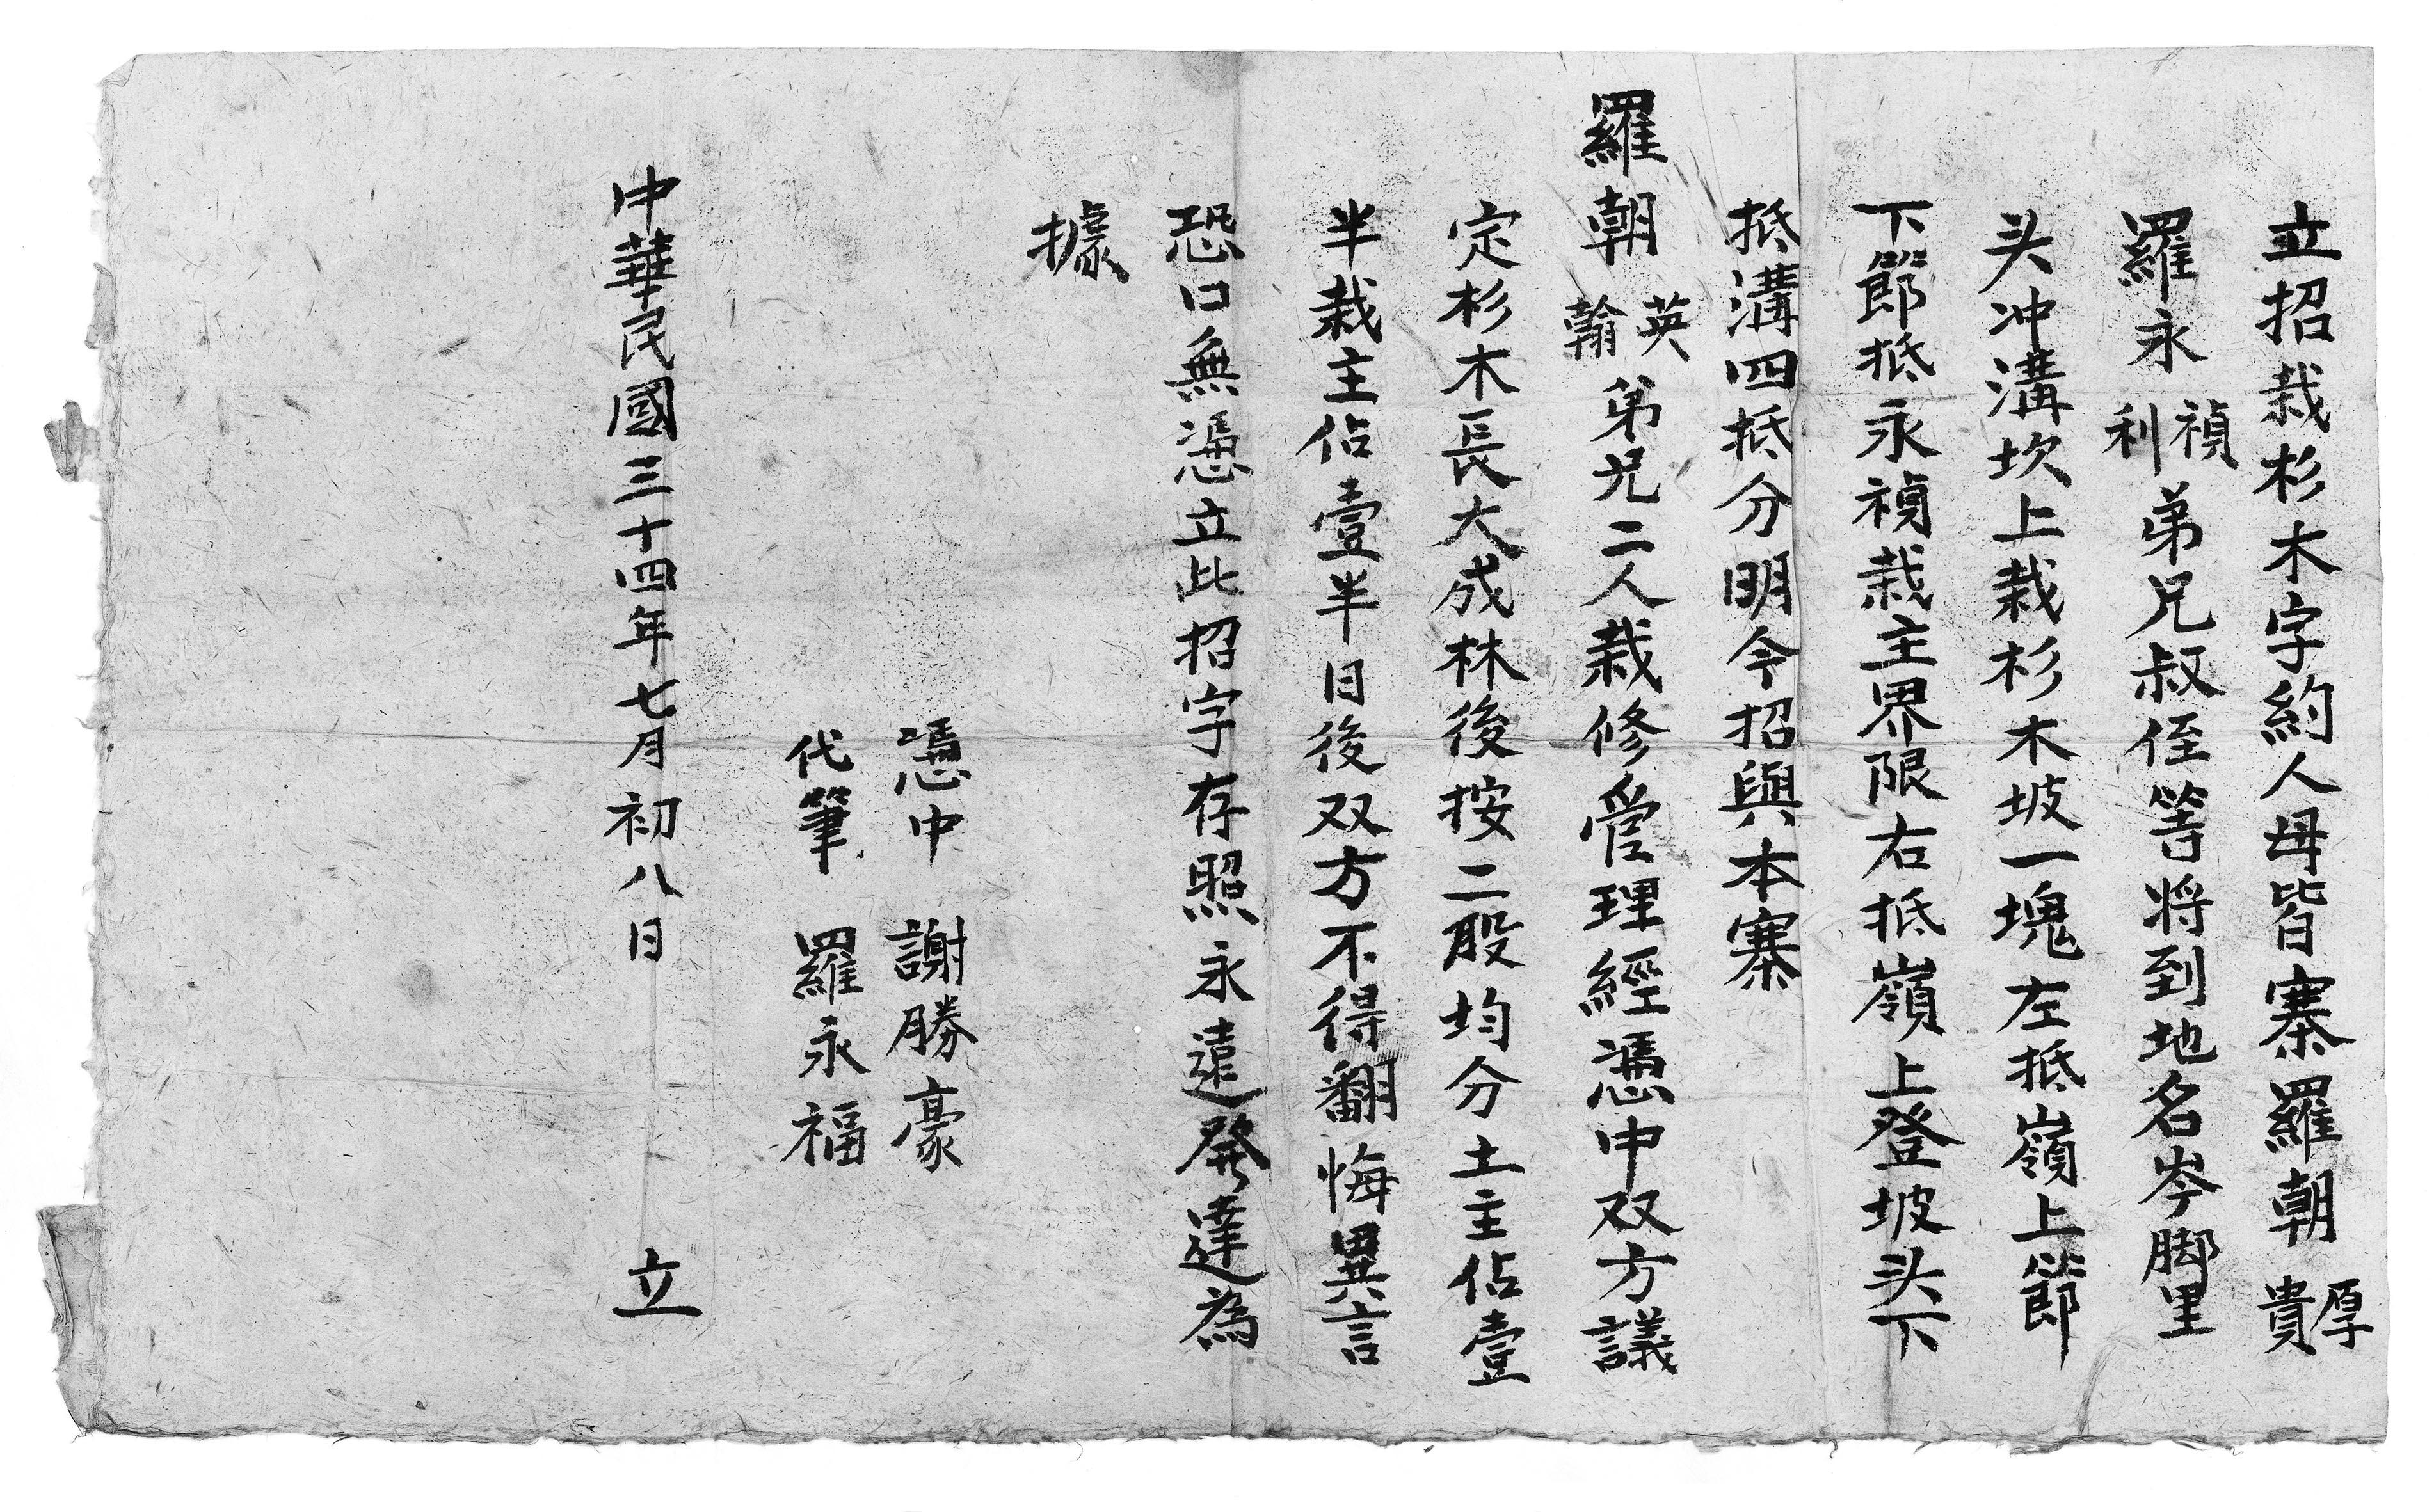 立招栽杉木字約人毋皆寨羅朝厚貴
羅永禎利弟兄叔侄等将到地名岑脚里
头冲溝坎上栽杉木坡一塊左抵嶺上節
下節抵永禎栽主界限右抵嶺上登坡头下
抵溝四抵分明今招與本寨
羅朝英翰弟兄二人栽修管理經憑中双方議
定杉木長大成林後按二股均分土主佔壹
半栽主佔壹半日後双方不得翻悔異言
恐口無憑立此招字存照永遠発達為
據
憑中 謝勝豪
代筆 羅永福
中華民國三十四年七月初八日 立